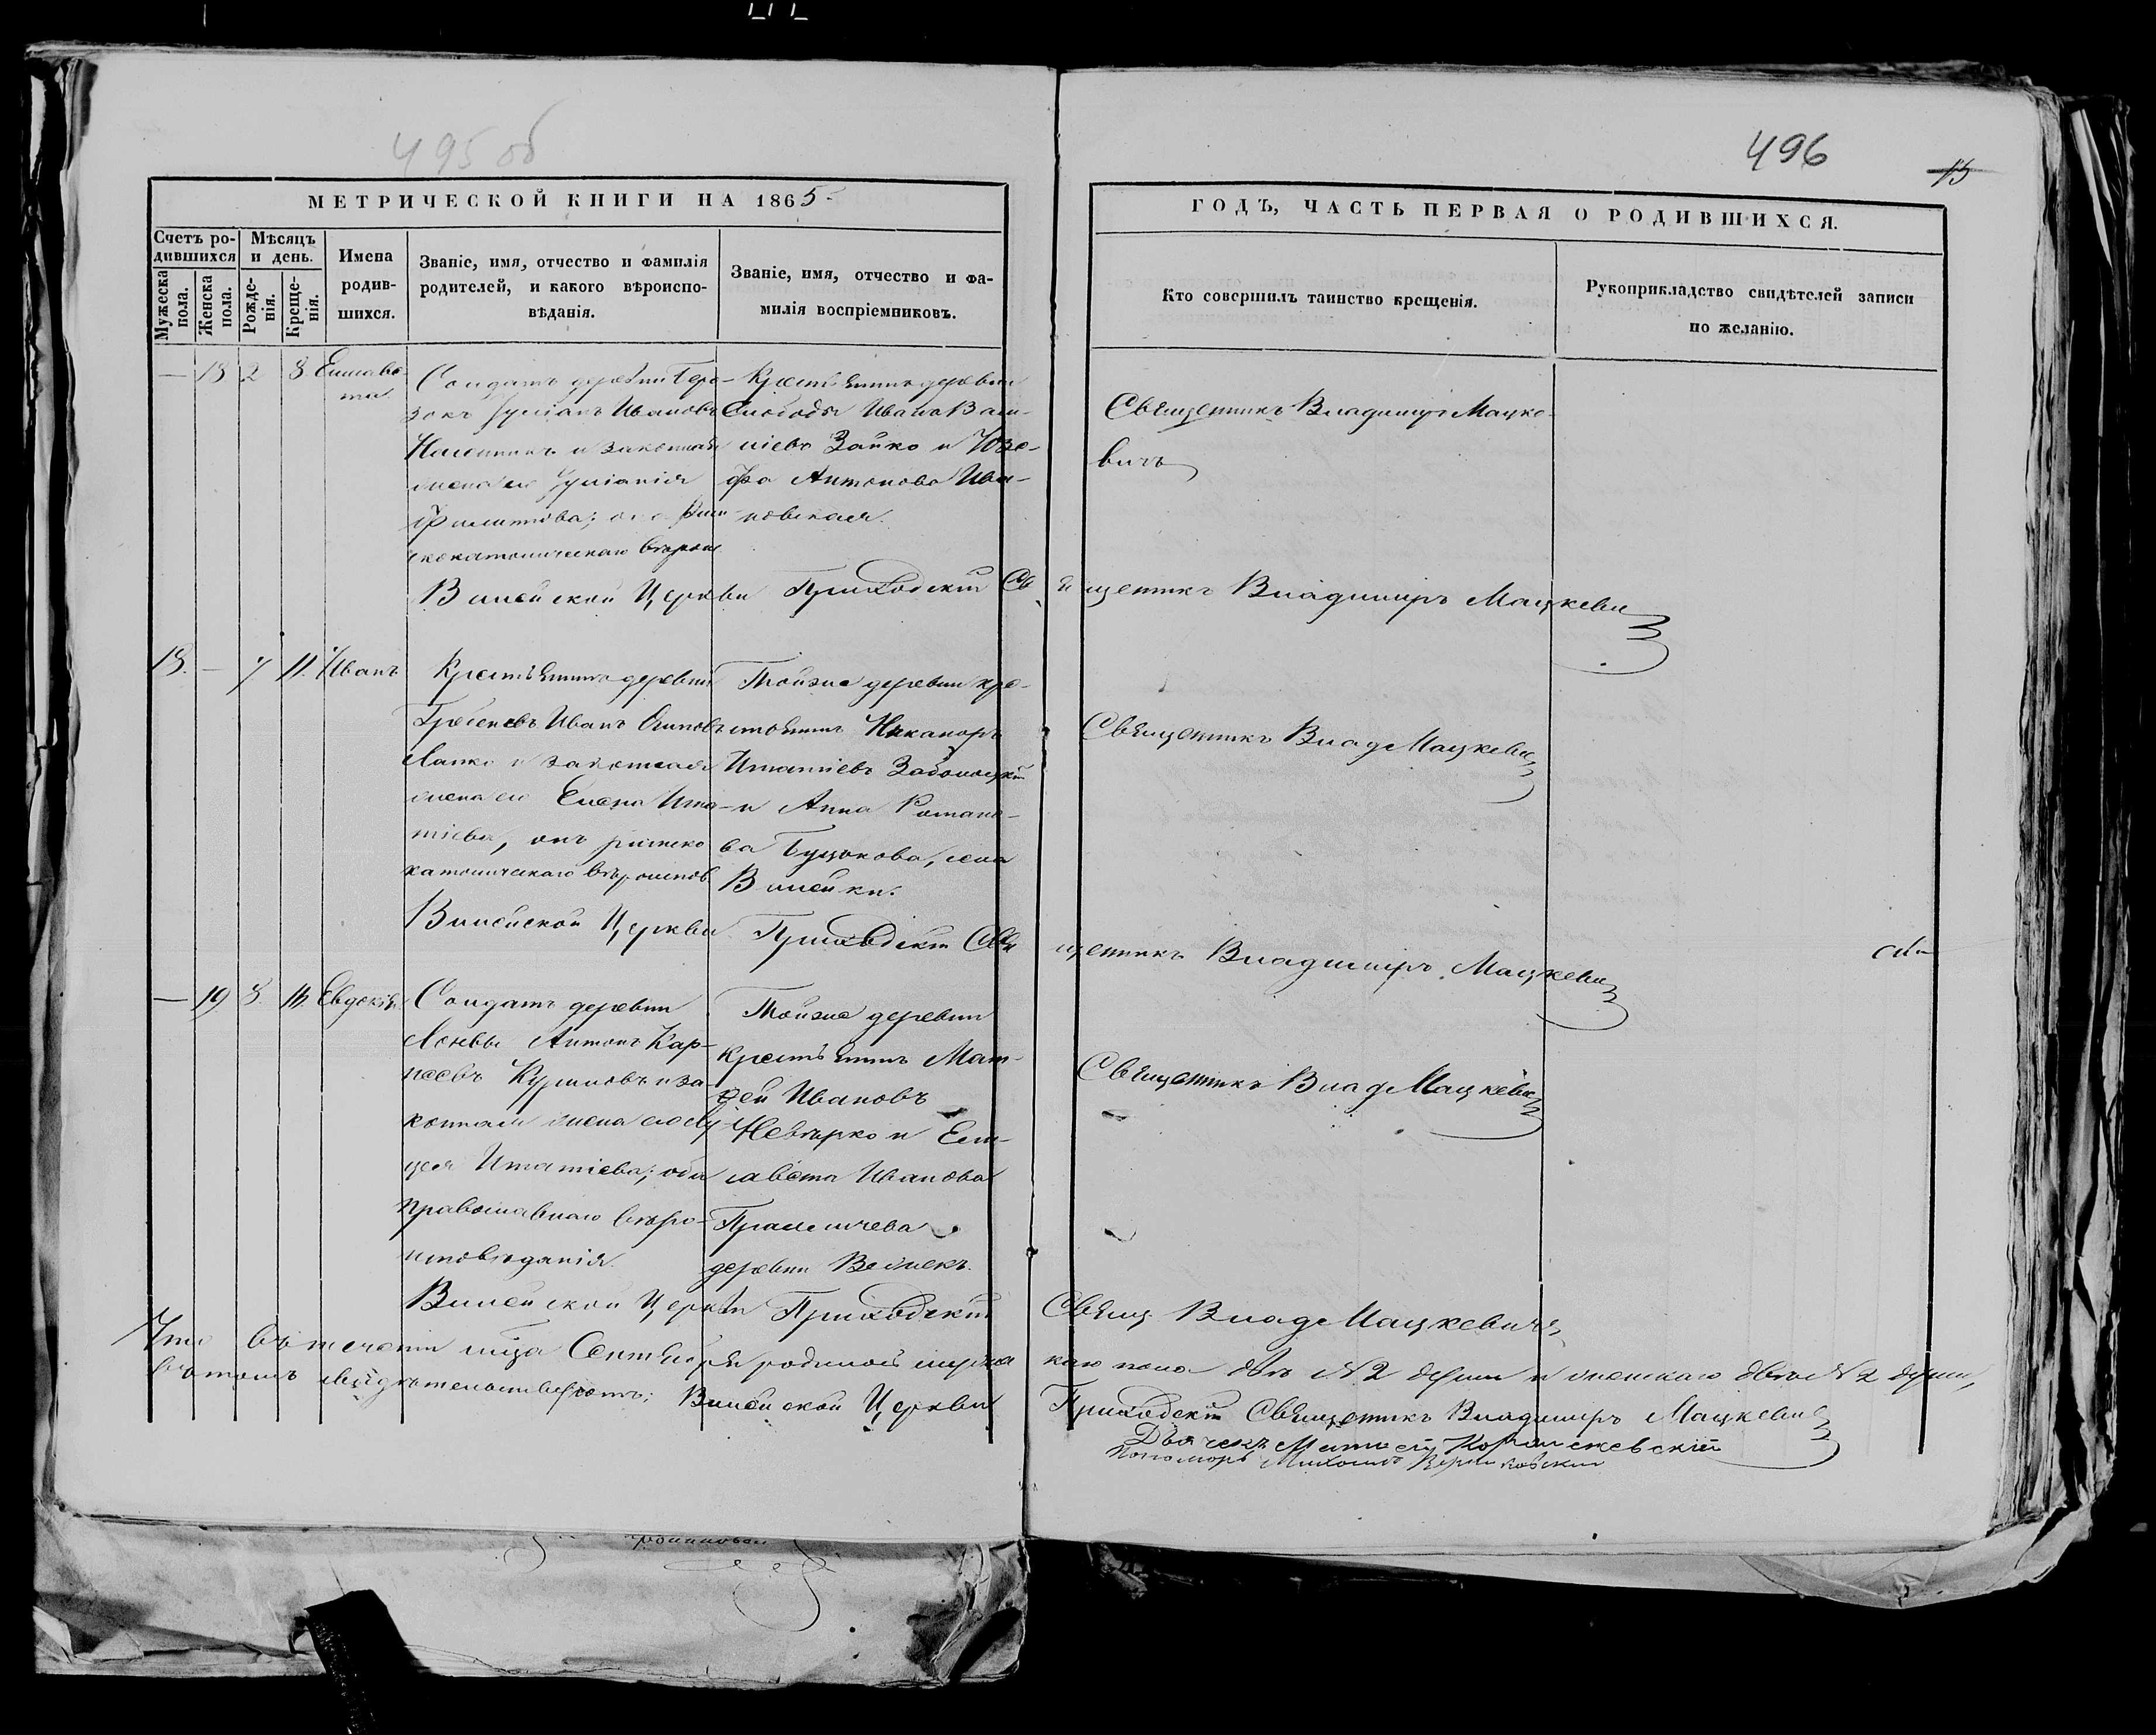 495 об
496
15
МЕТРИЧЕСКОЙ КНИГИ НА 1865
ГОДЪ, ЧАСТЬ ПЕРВАЯ О РОДИВШИХСЯ.
Счетъ родившихся
Мужеска пола.
Женска пола.
Мѣсяцъ и день.
Рожденія.
Крещенія.
Имена родившихся.
Званіе, имя, отчество и фамилія родителей, и какого вѣроисповѣданія.
Званіе, имя, отчество и фамилія воспріемниковъ.
Кто совершилъ таинство крещенія.
Рукоприкладство свидѣтелей записи по желанію.
— 18 2 8 Елисаве-
та
Солдатъ деревни
Ивановъ
и законная
жена его Іуліанія
Филиппова;
скокатолическаго вѣроис
Крестьянинъ деревни
Слободы Иванъ Васи-
ліевъ Зайко и Юзе-
фа Антонова Ива-
новская.
Священникъ Владиміръ Мацке-
вичъ
Вилейской Церкви Приходскій Священникъ Владиміръ Мацкевич
18. — 7 11. Иванъ
Крестьянинъ деревни
Гребеневъ Иванъ Осиповъ
Лапко и законная
жена его Елена Игна-
тіева, онъ римско
католическаго вѣроисповѣ
Тойже деревни кре-
стьянинъ Никаноръ
Игнатіевъ Заболоцкій
и Анна Романо-
ва Буцкова, села
Вилейки.
Священникъ Влад Мацкевич
Вилейской Церкви Приходскій Священникъ Владиміръ Мацкевич
— 19 8 14. Евдокія
Солдатъ деревни
Антонъ Кар-
пеевъ Куриловъ и за-
конная жена его Лу-
церя Игнатіева; оба
православнаго вѣро-
исповѣданія.
Тойже деревни
крестьянинъ Мат-
фей Ивановъ
Невѣрко и Ели-
савета Иванова
деревни
Священникъ Влад Мацкевич
Вилейской Церкви Приходскій Свящ Влад Мацкевичъ
Что въ теченіи мѣца Сентября родилось мужескаго пола двѣ № 2 души и женскаго двѣ № 2 души,
въ томъ свидѣтельствуютъ: Вилейской Церкви Приходскій Священникъ Владиміръ Мацкевич
Дьячекъ Матѳей
Пономарь Михаилъ